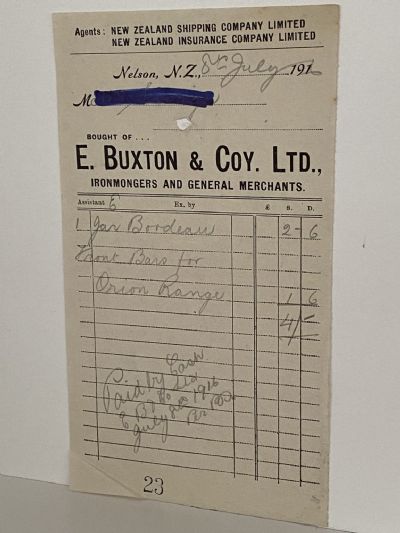 Agents: NEW ZEALAND SHIPPING COMPANY LIMITED
NEW ZEALAND INSURANCE COMPANY LIMITED
Nelson, N.Z., 8th July 1916
M
BOUGHT OF ...
E. BUXTON & COY. LTD.,
IRONMONGERS AND GENERAL MERCHANTS.
Assistant E Ex. by £ S. D.
1 Jar Bordeau 2 - 6
Front Bars for
Orion Range 1 6
4/-
Paid by Cash
E B & Co Ltd
July 8th 1916
Per
23